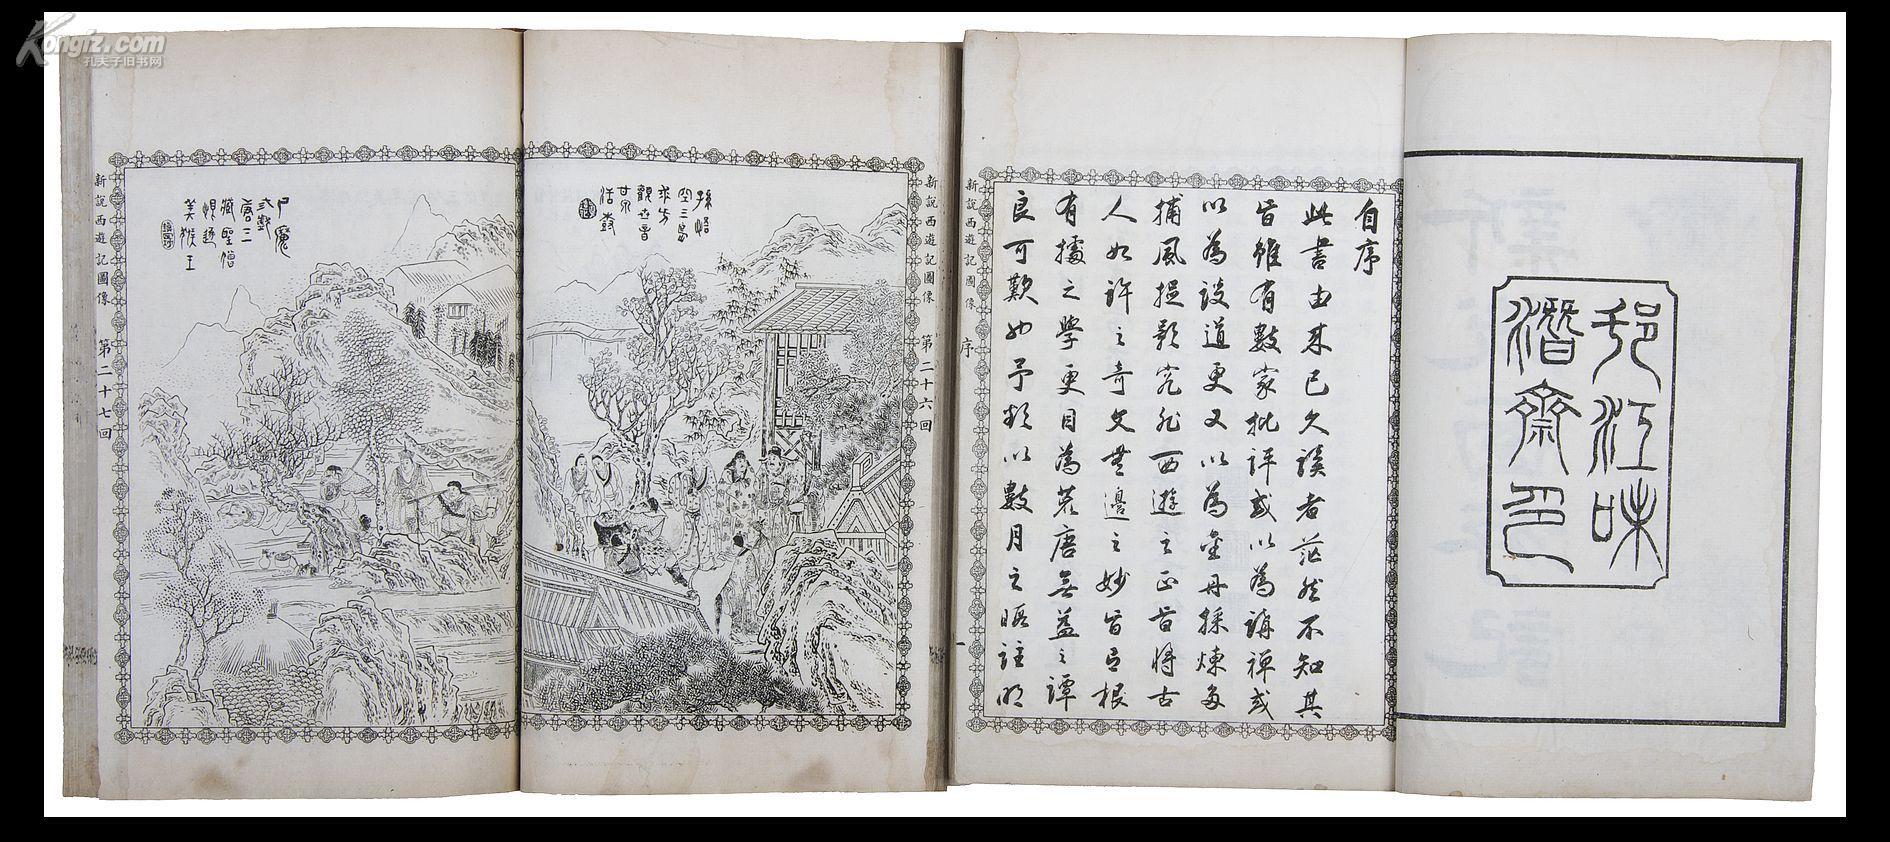 Kongfz.com
孔夫子旧书网
邗江味
潛齋印
自序
此書由來已久讀者茫然不知其
旨雖有數家批評或以為講禪或
以為談道更又以為金丹採煉多
捕風捉影究非西遊之正旨將古
人如許之奇文無邊之妙旨有根
有據之學更目為荒唐無益之譚
良可歎也予故以數月之暇註明
新說西遊記圖像 序
新說西遊記圖像 第二十六回
孫悟
空三島
求方
觀世音
甘泉
活樹
尸魔
三戲
唐三
藏聖僧
恨逐
美猴王
新說西遊記圖像 第二十七回